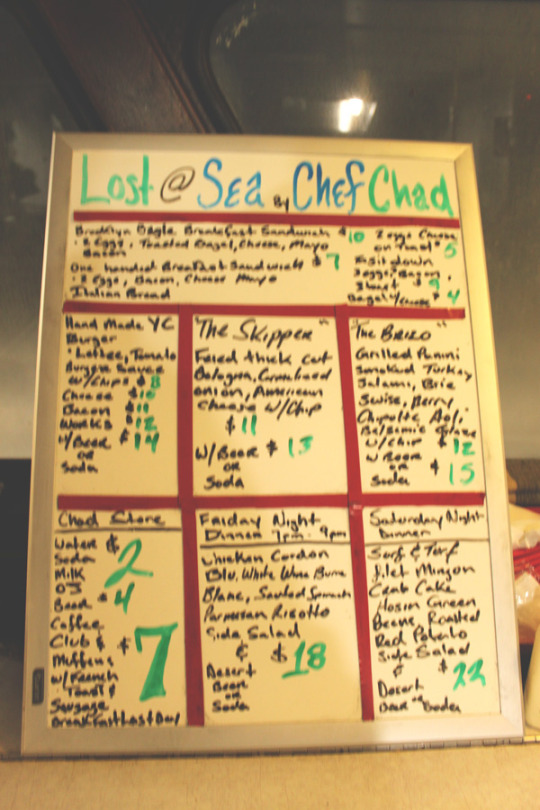 Lost @ Sea By Chef Chad
Brooklyn Bagle Breakfast Sandwich $10
- 2 Eggs, Toasted Bagel, Cheese, Mayo
Bacon
One handed Breakfast Sandwich $7
- 2 Eggs, Bacon, Cheese Mayo
Italian Bread
2 eggs Cheese
on Toast 5
Sit down
2 eggs, Bacon,
Toast $9
Bagel $4
Hand Made YC
Burger
Lettuce, Tomato
Burger Sauce
w/Chips $8
Cheese $10
Bacon $11
Works $12
w/Beer $14
or
Soda
"The Skipper"
Fried thick cut
Bologna, Caramelized
onion, American
Cheese w/Chip
$11
w/Beer $13
or
Soda
"The Brizo"
Grilled Panini
Smoked Turkey
Salami, Brie
Swiss, Berry
Chipotle Aoli,
Balsamic Glaze
w/Chip $12
w Beer
or $15
Soda
Chad Store
Water $2
Soda
Milk
OJ
Beer $4
Coffee
Club $ $7
Muffens
w/French
Toast &
Sausage
Breakfast Last Day
Friday Night
Dinner 7pm-9pm
Chicken Cordon
Blu, White Wine Burre
Blanc, Sauted Spinach
Parmesan Risotto
Side Salad
& $18
Desert
Beer
or
Soda
Saturday Night
Dinner
Surf & Turf
filet Mingon
Crab Cake
Hosin Green
Beans, Roasted
Red Potato
Side Salad
& $22
Desert
Beer "Soda